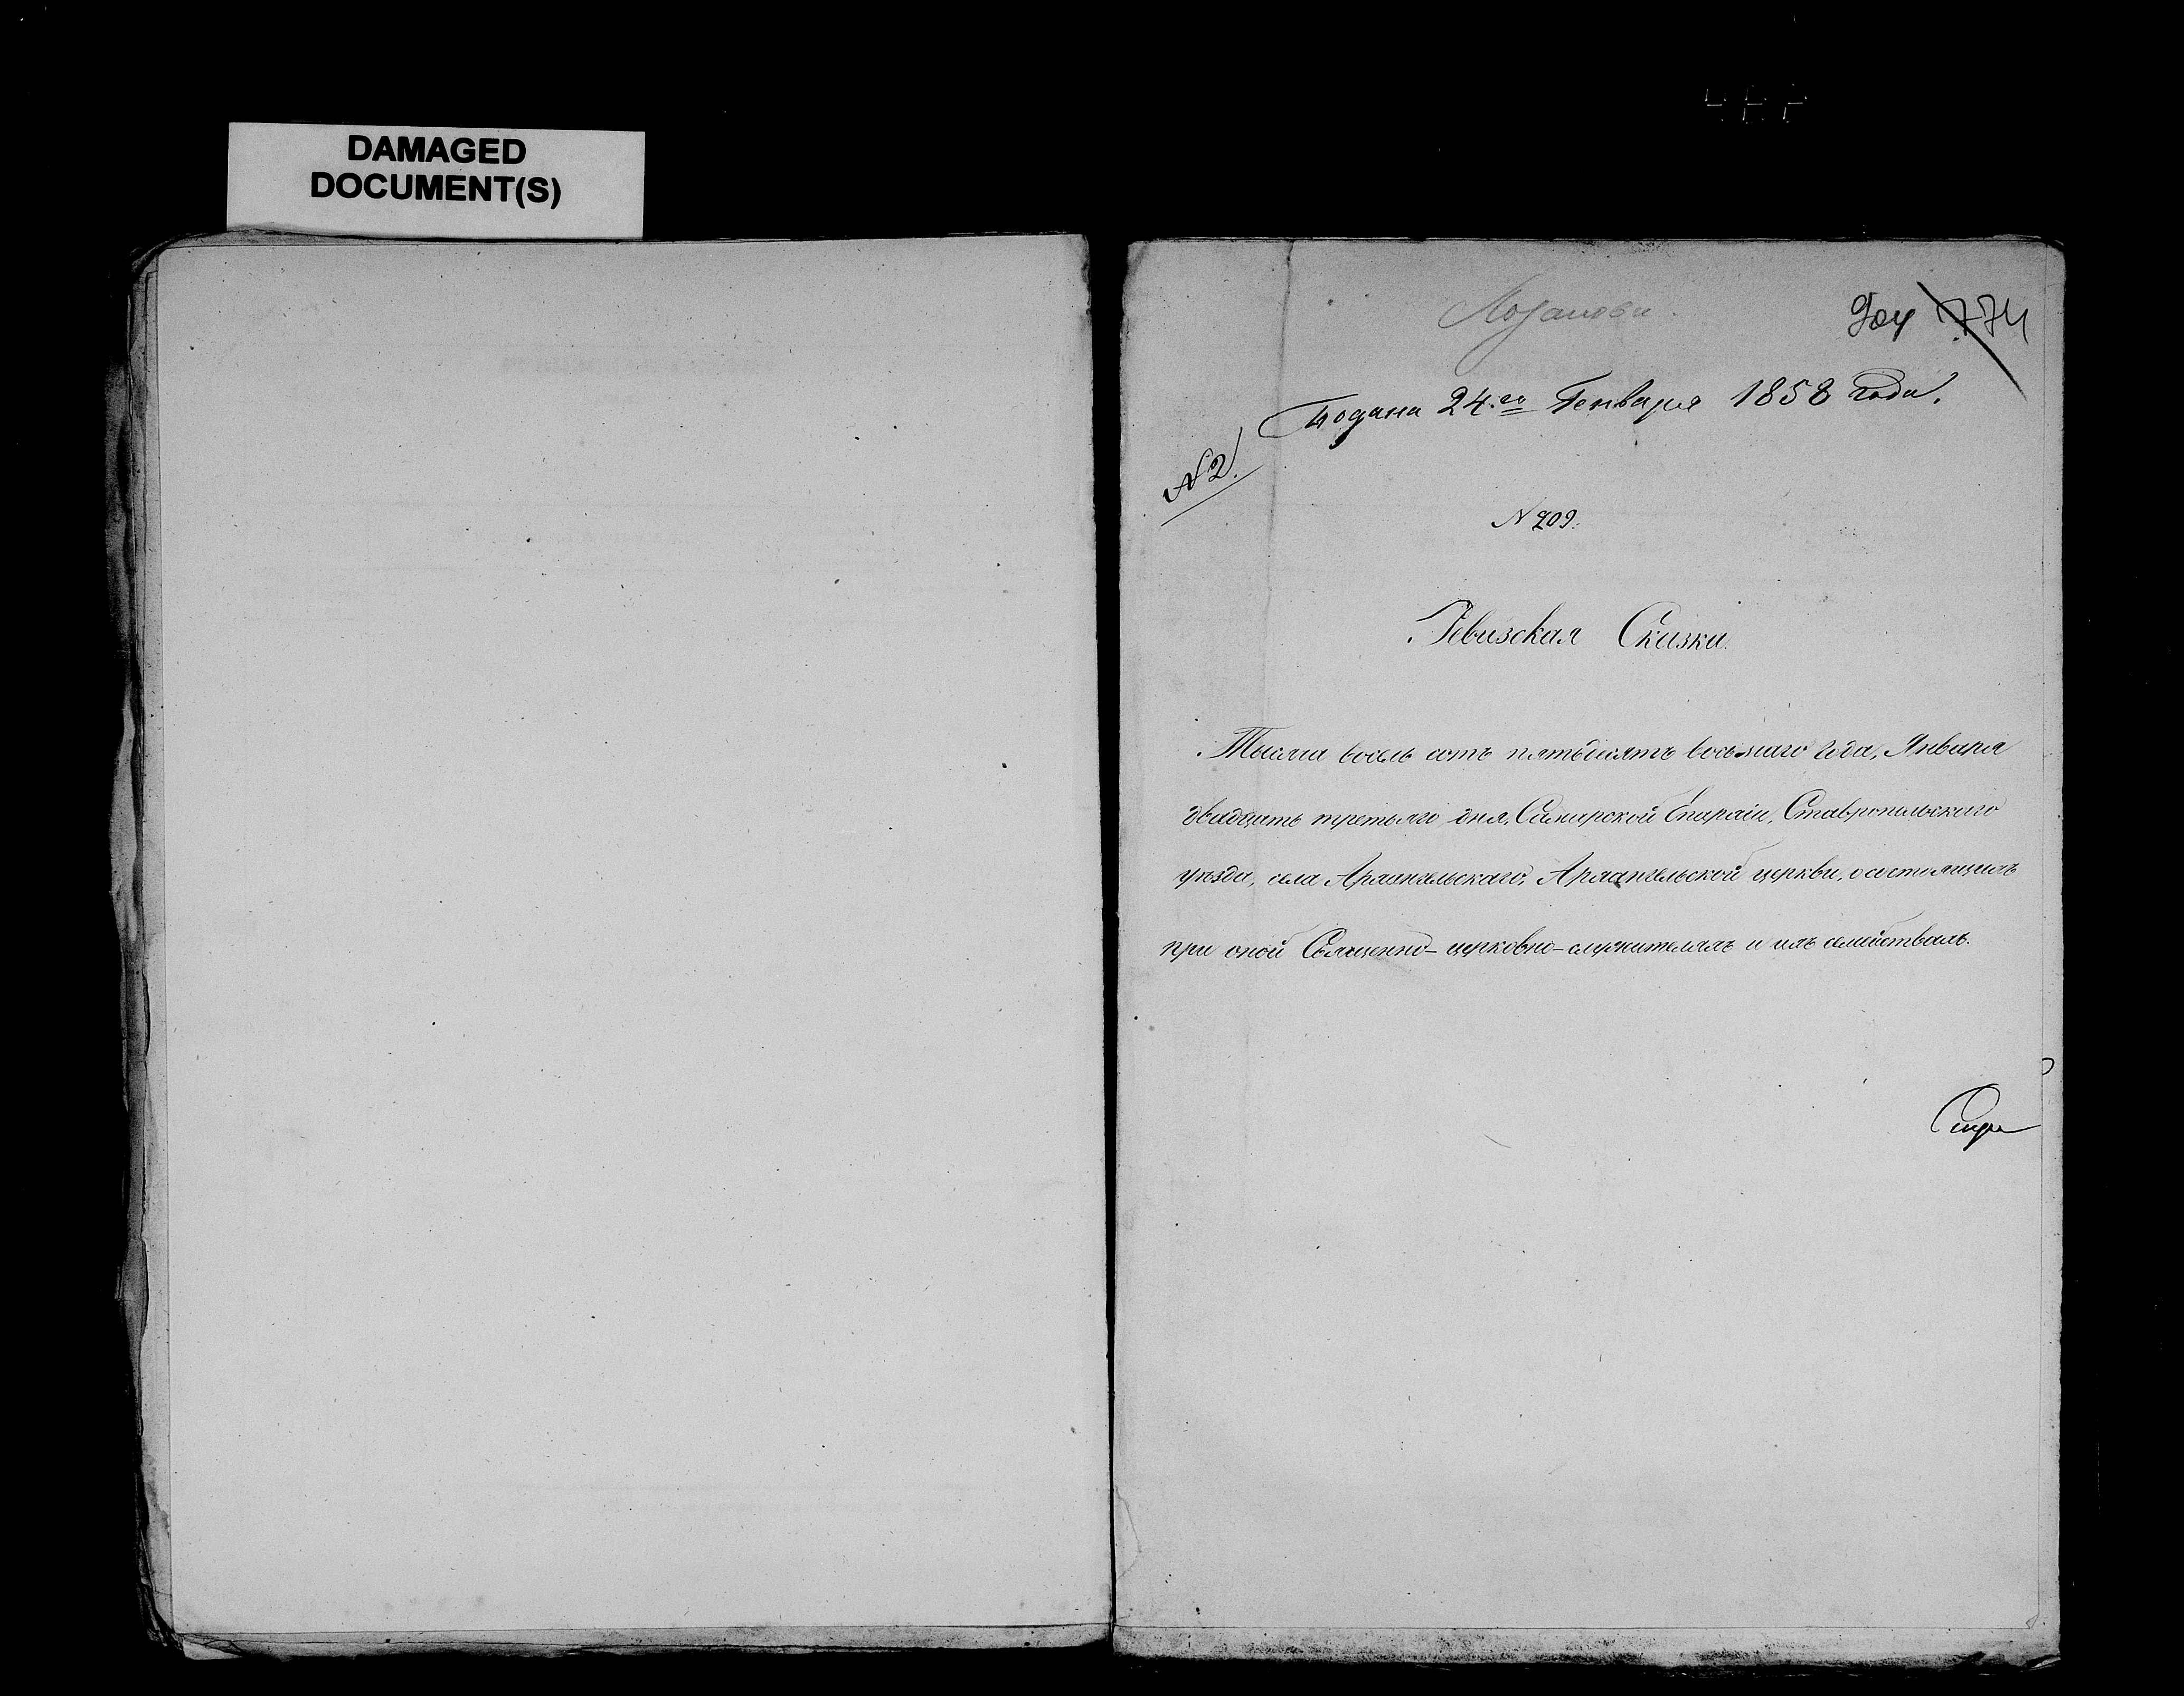 DAMAGED
DOCUMENT(S)
774
Подана 24.го Генваря 1858 года.
№ 2.
№ 209.
Ревизская Сказка.
Тысяча восемь сотъ пятьдесятъ восьмаго года, Января
двадцать третьяго дня, Самарской Епархіи, Ставропольскаго
уѣзда, села Архангельскаго, Архангельской церкви, о состоящихъ
при оной Священно-церковно-служителяхъ и ихъ семействахъ.